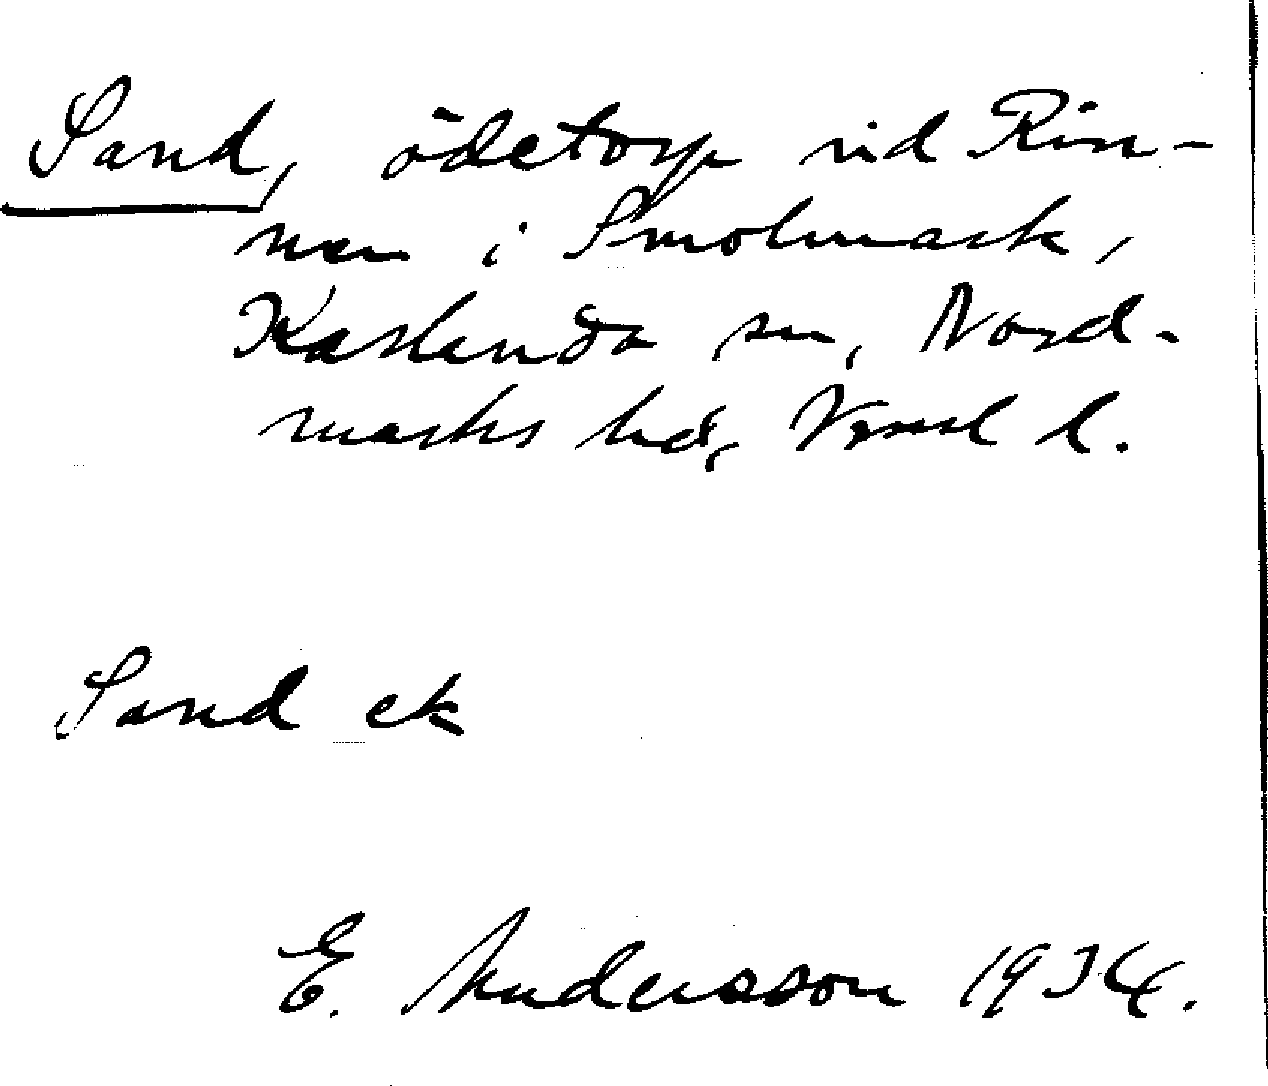 Sand, ödetorp vid Rin-
nen i Smolmark,
Karlanda sn, Nord-
marks hd, Vrml l.
Sand ck
E. Andersson 1934.